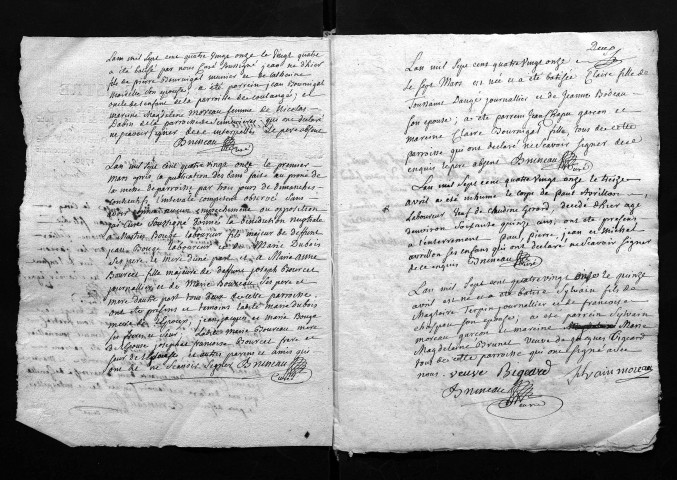 Lan mil Sept cent quatre vingt onze le vingt quatre
a été batisé par nous Curé Soussigné jean né d'hier
fils de pierre Bournigal munier et de Catherine
son epouse, a été parrein jean Bournigal
oncle de l'enfant de la parroisse de coulangé, et
mareine Magdeleine moreau femme de Nicolas
Dabin de la parroisse qui ont declaré
ne scavoir signer de ce interpellé Le pere absent
Bruneau
Curé
Lan mil Sept cent quatre vingt onze le premier
mars après la publication des bans faite au prone de
la messe de parroisse par trois jours de dimanches
consecutifs l'intervale competent observé Sans
aucun empechemens ou opposition
Curé Soussigné donné la benediction nuptiale
a Mathis Bouge laboureur fils majeur de deffunt
jean Bouge laboureur et de Marie Dubois
Ses pere et mere d'une part et a Marie anne
Bourcet fille majeure de deffunt joseph Bourcet
journallier et de Marie Boureau Ses pere et
mere dautre part tous deux de cette parroisse.
ont été presens et temoins laditte marie dubois
mere de l'epoux, jean, jacques, et marie Bouge
Ses freres et Seur, laditte marie Boureau mere
de l'epouse josephe francoise Bourcet frere et
Seur de l'epouse et autres parens et amis qui
ont dit ne scavoir Signer Bruneau
Curé
Deux
Lan mil Sept cens quatre vingt onze
le Sept Mars est née et a été batisée Claire fille de
toussaint Daugé journallier et de Jeanne Bodeau
Son epouse; a été parrein jean Chapu garcon et
mareine Claire Bournigal fille, tous de cette
parroisse qui ont declaré ne scavoir Signer de ce
enquis le pere absent Bruneau
Curé
Lan mil Sept cent quatre vingt onze le treize
avril a été inhumé le corps de paul Avrillon
Laboureur veuf de Claudine Gerard, decedé d'hier agé
denviron Soixante quinze ans, ont été presens
a l'enterrement paul, pierre, jean et Michel
avrillon Ses enfans qui ont declaré ne scavoir Signer
de ce enquis Bruneau
Curé
Lan mil Sept cent quatre vingt onze le quinze
avril est né et a été batisé Sylvain fils de
Magloire Terpin journallier et de francoise
Son epouse; a été parrein Sylvain
moreau garcon et mareine Marie
Magdeleine Brunet veuve de jacques Bigeard
tous de cette parroisse qui ont Signé avec
nous. veuve Bigeard
Silvain moreau
Bruneau
Curé